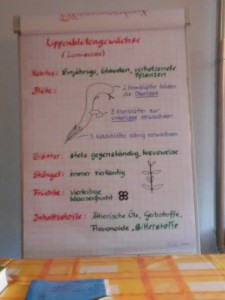 Lippenblütengewächse
(Lamiaceae)
Habitus: Einjährige, Stauden, verholzende
Pflanzen
Blüte:
2 Kronblätter bilden
die Oberlippe
3 Kronblätter zur
Unterlippe verwachsen
5 Kelchblätter röhrig verwachsen
Blätter: stets gegenständig, kreuzweise
Stängel: immer vierkantig
Früchte: vierteilige
Klausenfrucht
Inhaltsstoffe: Ätherische Öle, Gerbstoffe,
Flavonoide, Bitterstoffe